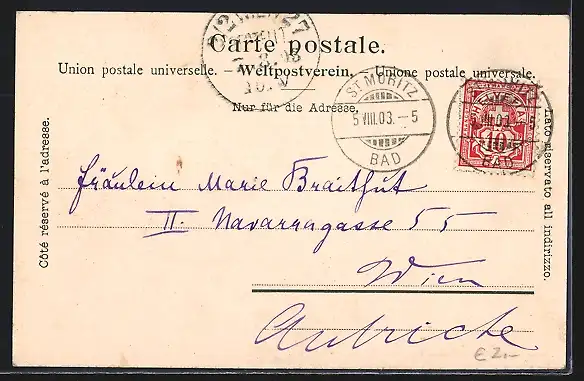 Carte postale.
Union postale universelle. — Weltpostverein. — Unione postale universale.
Nur für die Adresse.
ST MORITZ
5 VIII.03.—5
BAD
HELVETIA
10
BAD
Côté réservé à l'adresse.
Lato riservato all indirizzo.
Fräulein Marie Braitfut
II. Navarragasse 55
Wien
Autriche
€ 2.-